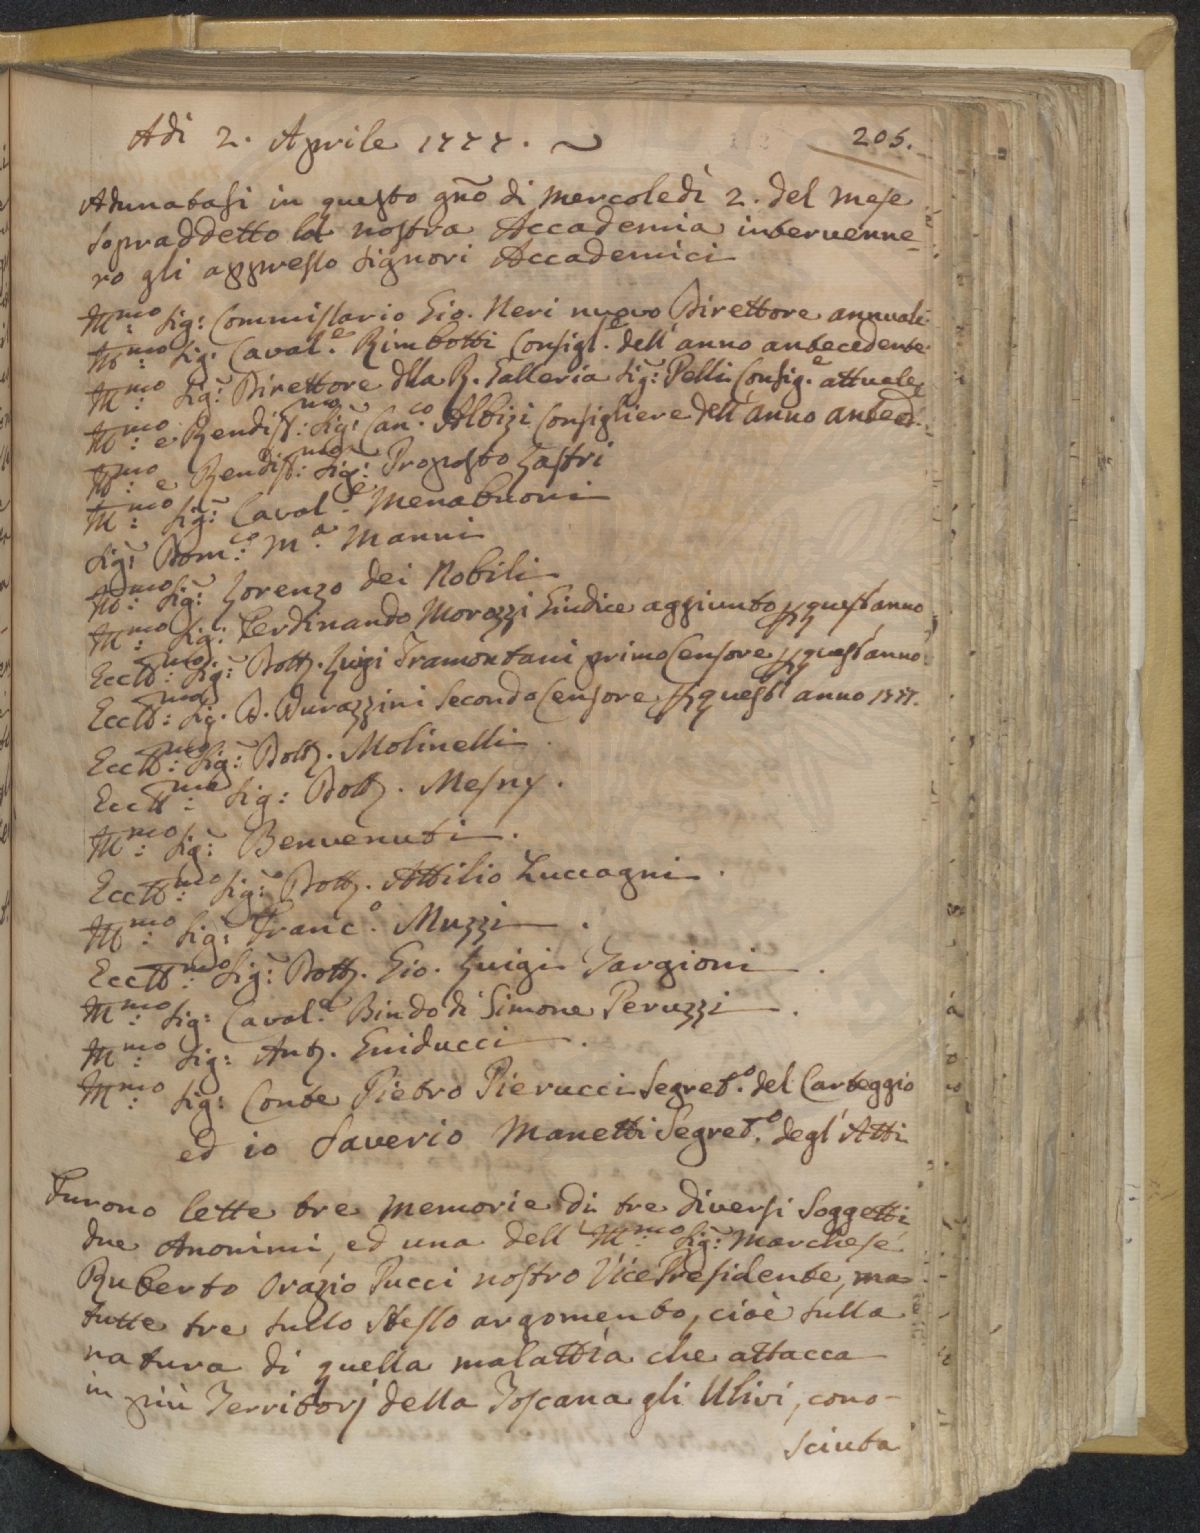 Adì 2. Aprile 1777.
205.
Adunatasi in questo gño di Mercoledì 2. del mese
sopraddetto la nostra Accademia intervenne-
ro gli appresso Signori Accademici
Illmo: Sig: Commissario Gio. Neri nuovo Direttore annuale
Illmo: Sig: Caval.e Rimbotti Consigl.e dell'anno antecedente
Illmo: Sig: Direttore dlla R. Galleria Sig: Pelli Consig.e attuale
Illmo: e Rendiss:mo Sig: Can.co Albizi Consigliere dell'anno anteced.
Illmo: e Rendiss:mo Sig: Proposto Lastri
Illmo: Sig: Caval.e Menabuoni
Sig: Dom:co M.a Manni
Illmo: Sig: Lorenzo dei Nobili
Illmo: Sig: Ferdinando Morozzi Giudice aggiunto p quest'anno
Eccll:mo Sig: Dott. Luigi Tramontani primo Censore p quest'anno
Eccll:mo Sig. D. Durazzini Secondo Censore p quest'anno 1777.
Eccll:mo Sig: Dott. Molinelli
Eccll:mo Sig: Dott. Mesny.
Illmo: Sig: Benvenuti.
Eccll:mo Sig: Dott. Attilio Zuccagni.
Illmo: Sig: Franc.o Muzzi.
Eccll:mo Sig: Dott. Gio. Luigi Targioni.
Illmo: Sig: Caval.e Bindo di Simone Peruzzi.
Illmo: Sig: Ant. Guiducci.
Illmo: Sig: Conte Pietro Pierucci Segret.o del Carteggio
ed io Saverio Manetti Segret.o degl'Atti
Furono lette tre memorie di tre diversi Soggetti
due Anonimi, ed una dell'Illmo: Sig: Marchese
Ruberto Orazio Pucci nostro Vice Presidente, ma
tutte tre sullo stesso argomento, cioè sulla
natura di quella malattia che attacca
in più Territorj della Toscana gli Ulivi, cono-
sciuta